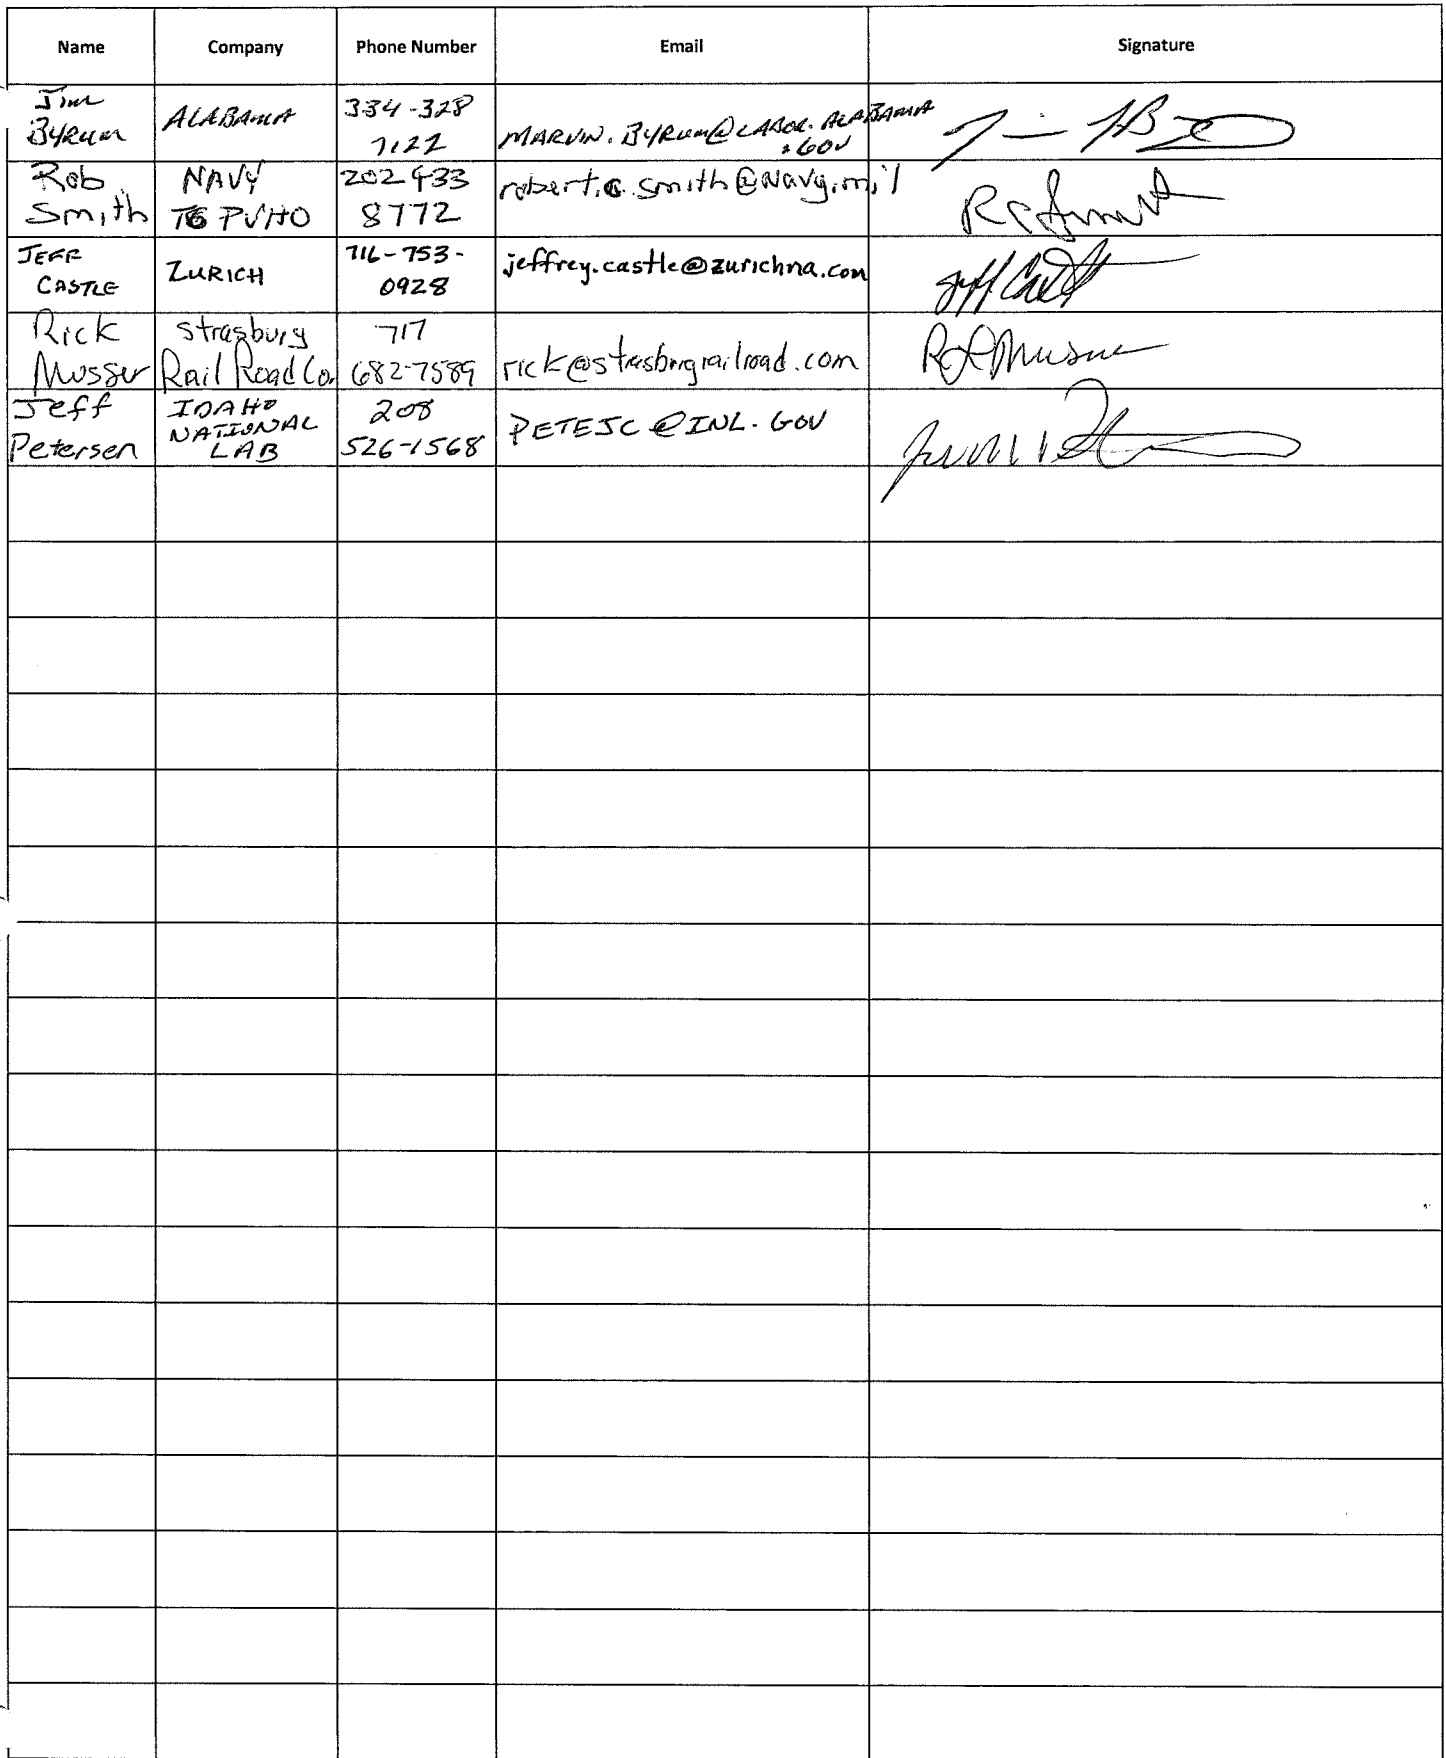 Name Company Phone Number Email Signature
Jim
Byrum
ALABAMA
334-328
7122
MARVIN.BYRUM@LABOR.ALABAMA
.GOV
Rob
Smith
NAVY
TG PVHO
202 433
8772
robert.c.smith@navy.mil
JEFF
CASTLE
ZURICH
716-753-
0928
jeffrey.castle@zurichna.com
Jeff Castle
Rick
Musser
Strasburg
Rail Road Co.
717
682-7589
rick@strasburgrailroad.com
Jeff
Petersen
IDAHO
NATIONAL
LAB
208
526-1568
PETEJC@INL.GOV